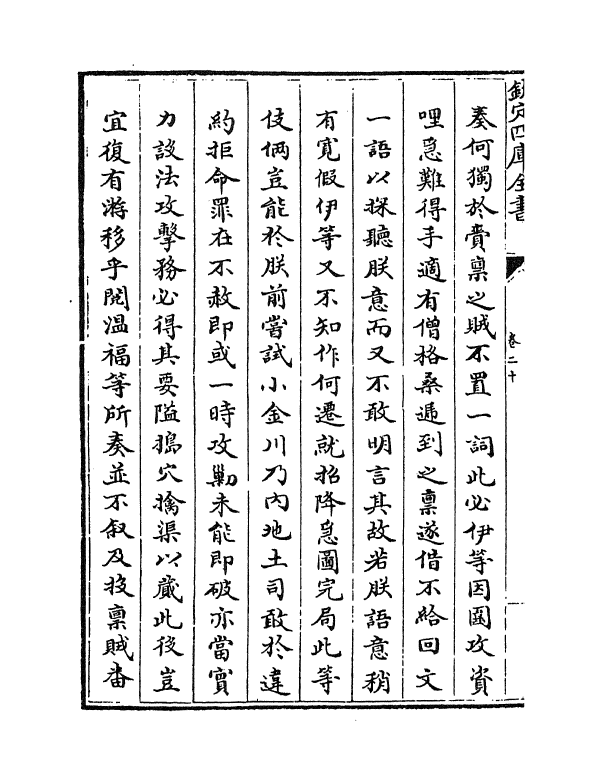 欽定四庫全書
卷二十
奏何獨於賫稟之賊不置一詞此必伊等因圍攻資
哩急難得手適有僧格桑逓到之稟遂借不給回文
一語以探聽朕意而又不敢明言其故若朕語意稍
有寛假伊等又不知作何遷就招降急圖完局此等
伎倆豈能於朕前嘗試小金川乃内地土司敢於違
約拒命罪在不赦即或一時攻勦未能即破亦當實
力設法攻擊務必得其要隘搗穴擒渠以蕆此後豈
宜復有游移乎閱温福等所奏並不叙及投稟賊番